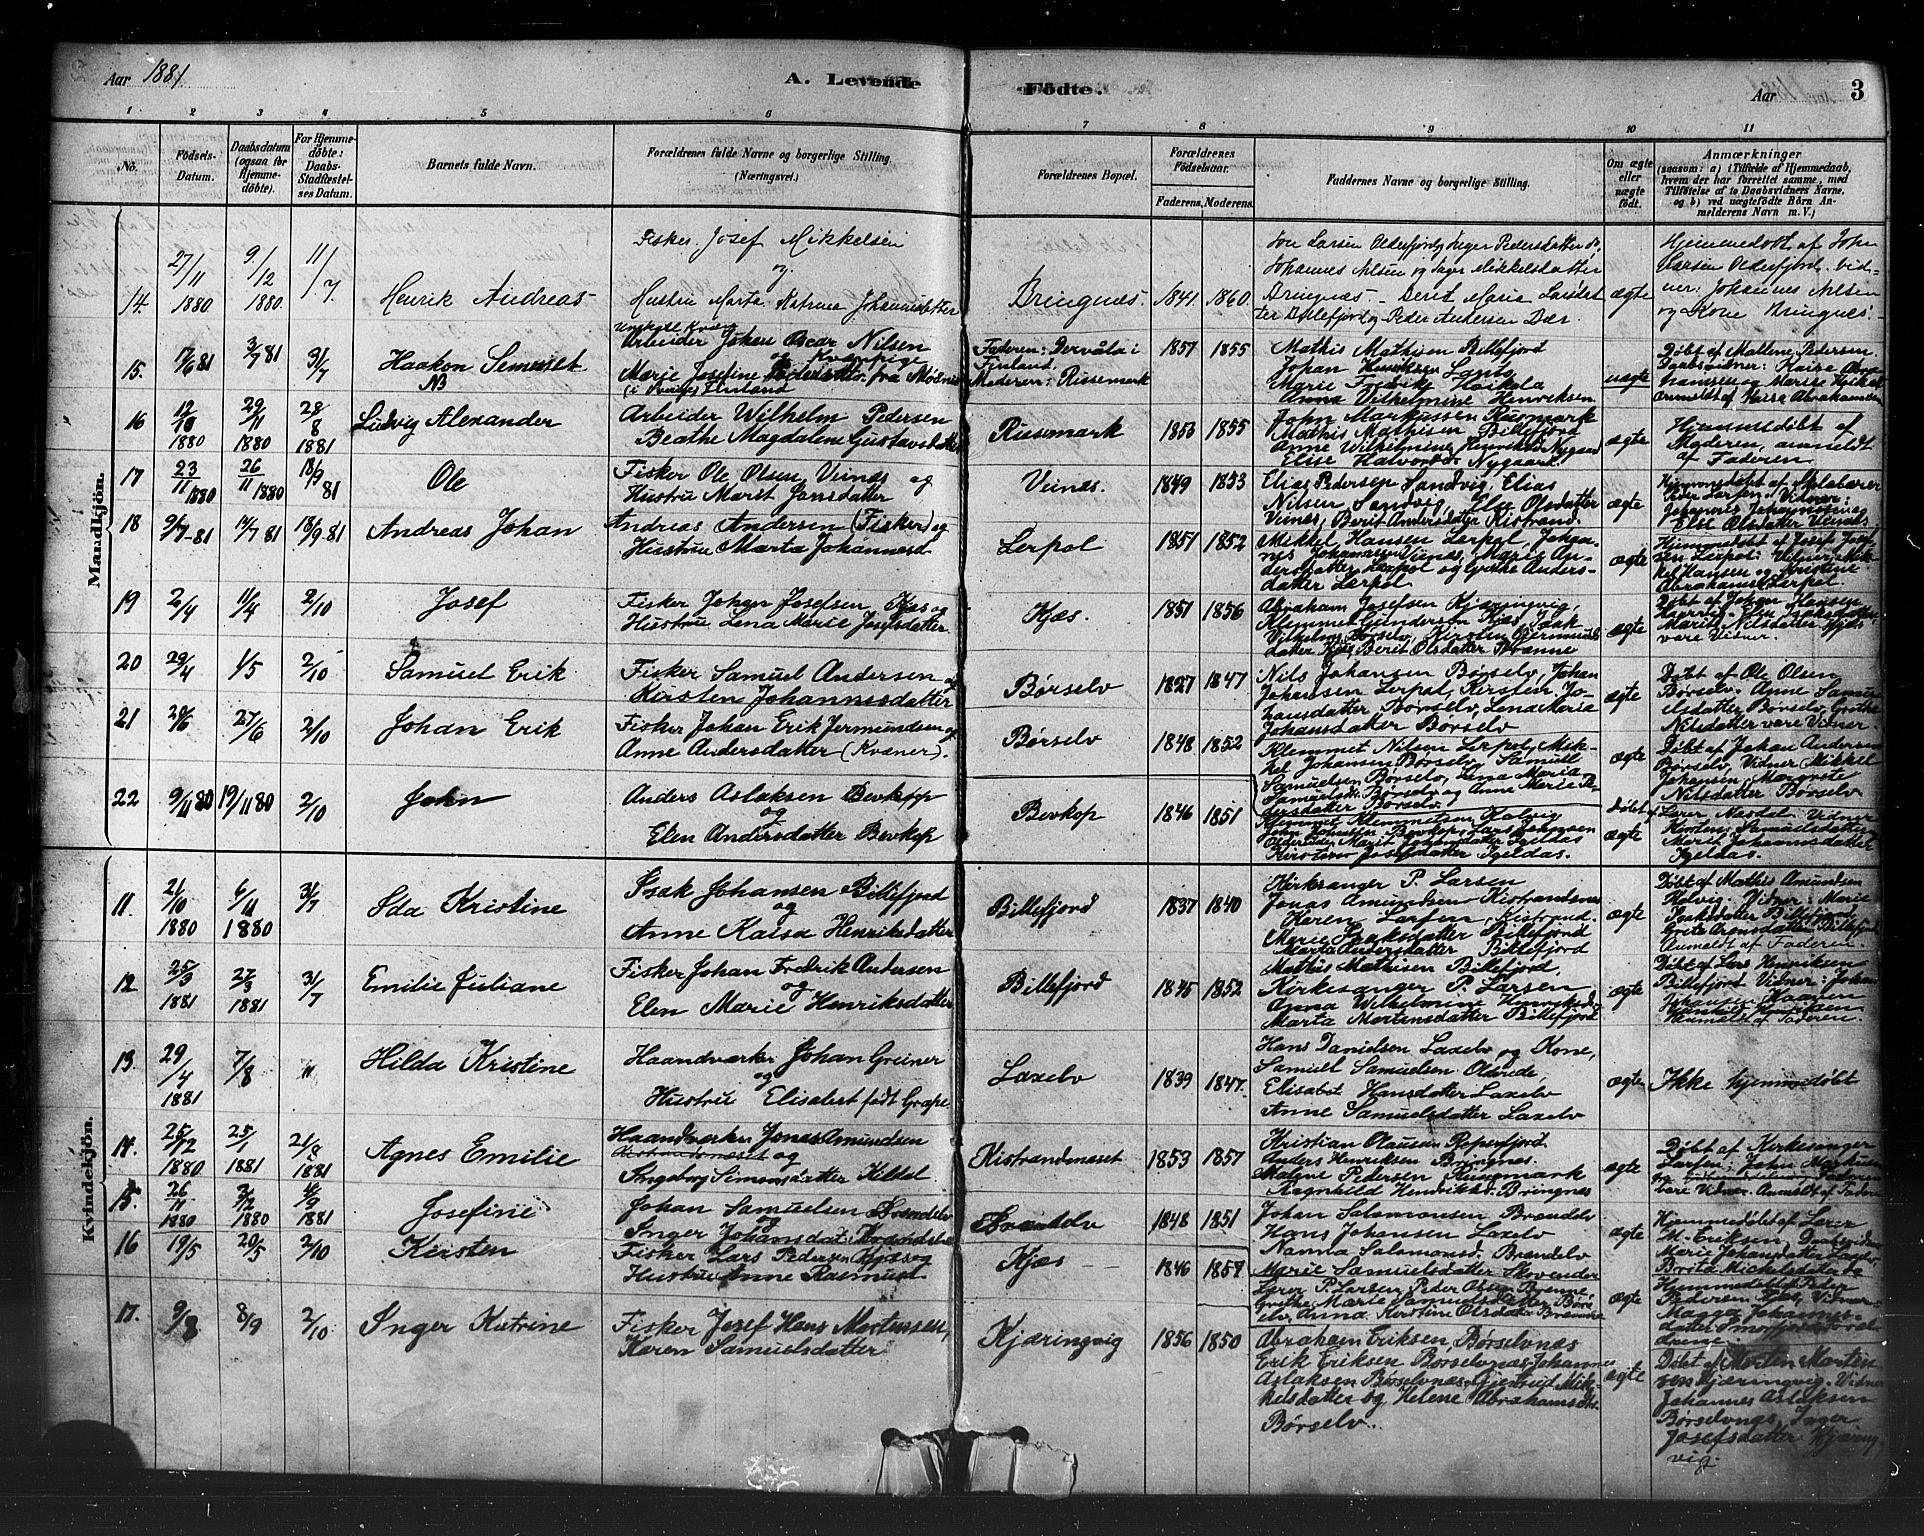 Aar 1881
A. Levende
Fødte.
Aar
3
1 2 3 4 5 6 7 8 9 10 11
No.
Fødsels-
Datum.
Daabsdatum
(ogsaa for
Hjemme-
døbte).
For Hjemme-
døbte:
Daabs-
Stadfæstel-
ses Datum.
Barnets fulde Navn.
Forældrenes fulde Navne og borgerlige Stilling.
(Næringsvei.)
Forældrenes Bopæl.
Forældrenes
Fødselsaar.
Faderens.
Moderens.
Faddernes Navne og borgerlige Stilling.
Om ægte
eller
uægte
født.
Anmærkninger
(saasom: a) i Tilfælde af Hjemmedaab,
hvem der har forrettet samme, med
Tilføielse af to Daabsvidners Navne,
og b) ved uægtefødte Børn An-
melderens Navn m. V.)
Mandkjøn.
14. 27/11 1880. 9/12 1880. 11/7 Henrik Andreas
Fisker Josef Mikkelsen
og
Hustru Marta Katrina Johannesdatter
Bringnes. 1841 1860.
Jon Larsen Olderfjord, Inger Pedersdatter do,
Johannes Nilsen og Inger Mikkelsdatter
Bringnæs. Berit Maria Larsdat
ter Billefjord og Peder Andersen
ægte
Hjemmedøbt af John
Larsen Olderfjord. Vid-
ner: Johannes Nilsen
og Kone Bringnes.
15. 17/6 81 3/7 81 31/7 Haakon Semuel
NB
Arbeider Johan Oscar Nilsen
og Kvænpige
Marie Josefine Pedersdatter fra
Finland
Faderen: i
Finland
Moderen: Russemark
1857 1855
Mathis Mathisen Billefjord
Johan Henriksen
Marie Fredrik Haikola
Anna Vilhelmine Henriksen
uægte
Døbt af Mallene Pedersen.
Daabsvidner: Kaisa Abra-
hamsen og Marise
Anmeldt af Kaisa Abrahamsen
16 12/10 1880 29/11 1880 28/8 1881 Ludvig Alexander
Arbeider Wilhelm Pedersen
Beathe Magdalene Gustavsdatter
Russemark 1853 1855
John Markussen Rusmark
Mathis Mathisen Billefjord
Anne Wilhelmine Henriksd. Nygaard
Elise Halvorsd. Nygaard.
ægte
Hjemmedøbt af
Moderen, anmeldt
af Faderen
17 23/11 1880 26/11 1880 18/9 81 Ole
Fisker Ole Olsen Veinæs og
Hustru Marit Jonsdatter
Veinæs. 1849 1853
Elias Pedersen Sandvig, Elias
Nilsen Sandvig, Else Olsdatter
Veines, Berit Andersdatter Kistrand.
ægte
Hjemmedøbt af Skolelærer
Peder Larsen. Vidner:
Johannes Johannessen og
Else Olsdatter Veines
18 9/7-81 14/7 81 18/9-81 Andreas Johan
Andreas Andersen (Fisker) og
Hustru Marta Johannesd
Lerpol 1851 1852
Mikkel Hansen Lerpol, Johan-
nes Johannesen Veines, Maria An-
dersdatter Lerpol og Grethe Anders-
datter Lerpol
ægte
Hjemmedøbt af Josef Josef
sen Lerpol: Vidner: Mik-
kel Hansen og Kristine
Abrahamsd. Lerpol
19 2/4 11/4 2/10 Josef
Fisker Johan Josefsen Kjæs og
Hustru Lena Marie Josefsdatter.
Kjæs. 1851 1856
Abraham Josefsen Kjæringvig,
Klemmet Gundersen Kjæs, Isak
Vilhelms. Børselv, Kirsten Gjermunds-
datter Kjæs, Berit Olsdatter Brænne
ægte
Døbt af Johan Hansen
Elen Isaksdatter
Marit Nilsdatter Kjæs
vare Vidner.
20 29/4 1/5 2/10 Samuel Erik
Fisker Samuel Andersen og
Kirsten Johannesdatter
Børselv 1827 1847
Nils Johansen Børselv, Johan
Johansen Lerpol, Kirsten Jo-
hansdatter Børselv, Lena Maria
Johansdatter Børselv
ægte
Døbt af Ole Olsen
Børselv. Anne Samu-
elsdatter Børselv, Grethe
Nilsdatter vare Vidner
21 20/6 27/6 2/10 Johan Erik
Fisker Johan Erik Jermundsen og
Anne Andersdatter (Kvæner).
Børselv 1848 1852
Klemmet Nilsen Lerpol, Mik-
kel Johansen Børselv, Samuel
Samuelsen Børselv, Lena Maria
Samuelsdt. Børselv og Anne Marie
datter Børselv
ægte
Døbt af Johan Andersen
Børselv, Vidner Mikkel
Johansen, Margrete
Nilsdatter Børselv
22 9/11 80 19/11 80 2/10 John
Anders Aslaksen Bevkop
og
Elen Andersdatter Bevkop
Bevkop 1846 1851
Klemmet Klemmetsen Kolvig
John Johnsen Bevkop, Lars Johnsen
Olderfjord Marit Johannesdatter Igeldas
Kirsten Josefsdatter Igeldas.
ægte
Døbt af Lærer Nesdal Vidner
Kirsten Samuelsdatter
Marit Johannesdatter
Igeldas.
Kvindekjøn.
11. 21/10 1880 6/11 1880 31/7 Ida Kristine
Isak Johansen Billefjord
og
Anne Kaisa Henriksdatter
Billefjord 1837 1840
Kirksanger P. Larsen
Jonas Amundsen Kistrandnes
Karen Larsen, Kistrand.
Marie Isaksdatter Billefjord
Marta Andersdatter Billefjord
ægte
Døbt af Mathis Amundsen
Kolvig. Vidner: Marie
Isaksdatter Billefjord,
Grete Aronsdatter Billefjord
Anmeldt af Faderen.
12 25/3 1881 27/3 1881 31/7 Emilie Juliane
Fisker Johan Fredrik Andersen
og
Elen Marie Henriksdatter
Billefjord 1845 1852
Mathis Mathisen Billefjord,
Kirkesanger P. Larsen
Anna Wilhelmine Henriksd.
Marta Mortensdatter Billefjord
ægte
Døbt af Lars Henriksen
Billefjord Vidner: Johan
Johansen
Henriksen
Anmeldt af Faderen.
13. 29/4 1881 7/8 " Hilda Kristine
Haandværker Johan Greiner
og
Hustru Elisabet født Grape.
Laxelv 1839 1847.
Hans Danielsen Laxelv og Kone,
Samuel Samuelsen Olderde,
Elisabet Hansdatter Laxelv
Anne Samuelsdatter Laxelv
ægte
Ikke hjemmedøbt
14. 25/12 1880 25/1 1881 21/8 1881 Agnes Emilie
Haandværker Jonas Amundsen
Kistrandnæset og
Ingeborg Simonsdatter Keldal
Kistrandnæset 1853 1857
Kristian Olausen Repperfjord
Anders Henriksen Bringnes.
Malene Pedersen Russemark
Ragnhild Henriksd. Bringnes
ægte
Døbt af Kirkesanger
Larsen; John
vare Vidner. Anmeldt af Faderen
15. 26/11 1880 3/12 1880 4/9 1881 Josefine
Johan Samuelsen Brændelv
og
Inger Johansdat. Brændelv
Brændelv 1848 1851
Johan Salomonsen Brændelv
Hans Johansen Laxelv
Nanna Salomonsd. Brændelv
Marie Samuelsdatter Skovender
ægte
Hjemmedøbt af Lærer
M. Eriksen, Daabsvidner
Marie Johansdatter Laxelv,
Brita Michelsdatter do
16 19/5 20/5 2/10 Kirsten
Fisker Lars Pedersen Kjæs og
Hustru Anne Rasmusd.
Kjæs 1846 1857
Lærer P. Larsen, Peder Olsen Brenne,
Grethe Marie Samuelsdatter Børs-
elv, Anna Kirstine Olsdatter Brænne
ægte
Hjemmedøbt af Peder
Pedersen Kjæs, Vidner
Magga Johannes-
datter Smørfjord
17. 9/8 8/9 2/10 Inger Katrine
Fisker Josef Hans Mortensen,
Karen Samuelsdatter
Kjæringvig 1856 1850
Abraham Eriksen, Børselvnæs
Erik Eriksen Børselvnæs, Johannes
Aslaksen Børselvnæs, Gjertrud Mik-
kelsdatter og Helene Abrahamsdtr.
Børselv.
ægte
Døbt af Morten Morten
sen Kjæringvig. Vidner
Johannes Aslaksen
Børselvnes, Inger
Josefsdatter Kjæring-
vig.